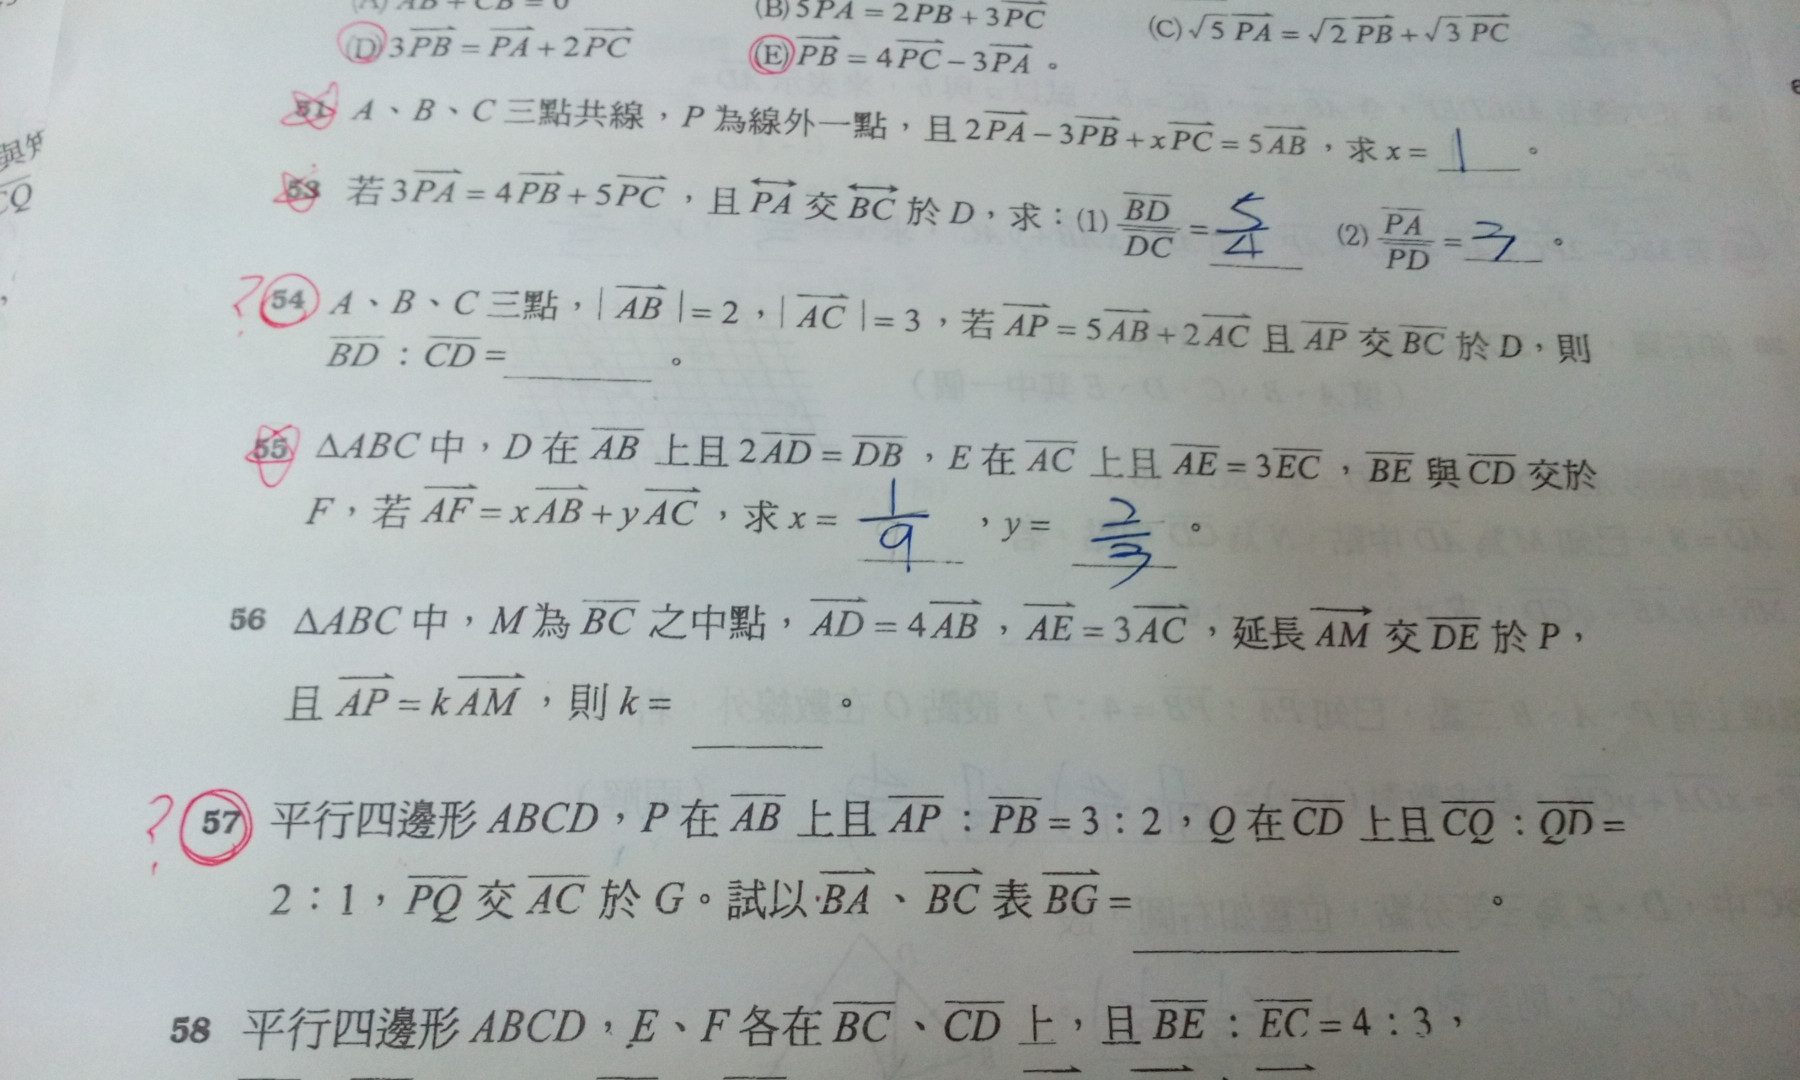 (A) AB + CB = 0 (B) 5PA = 2PB + 3PC (C) √5 PA = √2 PB + √3 PC
(D) 3PB = PA + 2PC (E) PB = 4PC − 3PA。
51 A、B、C 三點共線，P 為線外一點，且 2PA − 3PB + xPC = 5AB，求 x = 1。
53 若 3PA = 4PB + 5PC，且 PA 交 BC 於 D，求：(1) BD/DC = 5/4 (2) PA/PD = 3。
? 54 A、B、C 三點，| AB | = 2，| AC | = 3，若 AP = 5AB + 2AC 且 AP 交 BC 於 D，則
BD：CD = 。
55 ΔABC 中，D 在 AB 上且 2AD = DB，E 在 AC 上且 AE = 3EC，BE 與 CD 交於
F，若 AF = xAB + yAC，求 x = 1/9，y = 2/3。
56 ΔABC 中，M 為 BC 之中點，AD = 4AB，AE = 3AC，延長 AM 交 DE 於 P，
且 AP = k AM，則 k = 。
? 57 平行四邊形 ABCD，P 在 AB 上且 AP：PB = 3：2，Q 在 CD 上且 CQ：QD =
2：1，PQ 交 AC 於 G。試以 BA、BC 表 BG = 。
58 平行四邊形 ABCD，E、F 各在 BC、CD 上，且 BE：EC = 4：3，
CQ